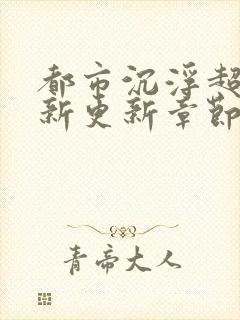 都市沉浮超
新更新章節
青帝大人